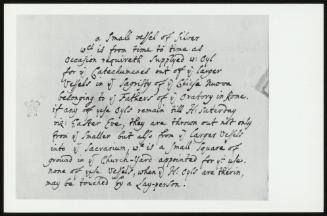 a Small vessel of Silver
wch is from time to time as
Occasion requireth Supplyed w: Oyl
for ye Catechumenes out of ye larger
Vessels in ye Sapristy of ye Chiesa Nuova
belonging to ye Fathers of ye Oratory in Rome.
if any of yse Oyls remain till H. Saturday
viz: Easter Eve, they are thrown out not only
from ye Smaller but also from ye larger Vessels
into ye Sacrarium, wch is a Small Square of
ground in ye Church-Yard appointed for yt use.
none of yse Vessels, when ye H. Oyls are therin,
may be touched by a Lay-person.